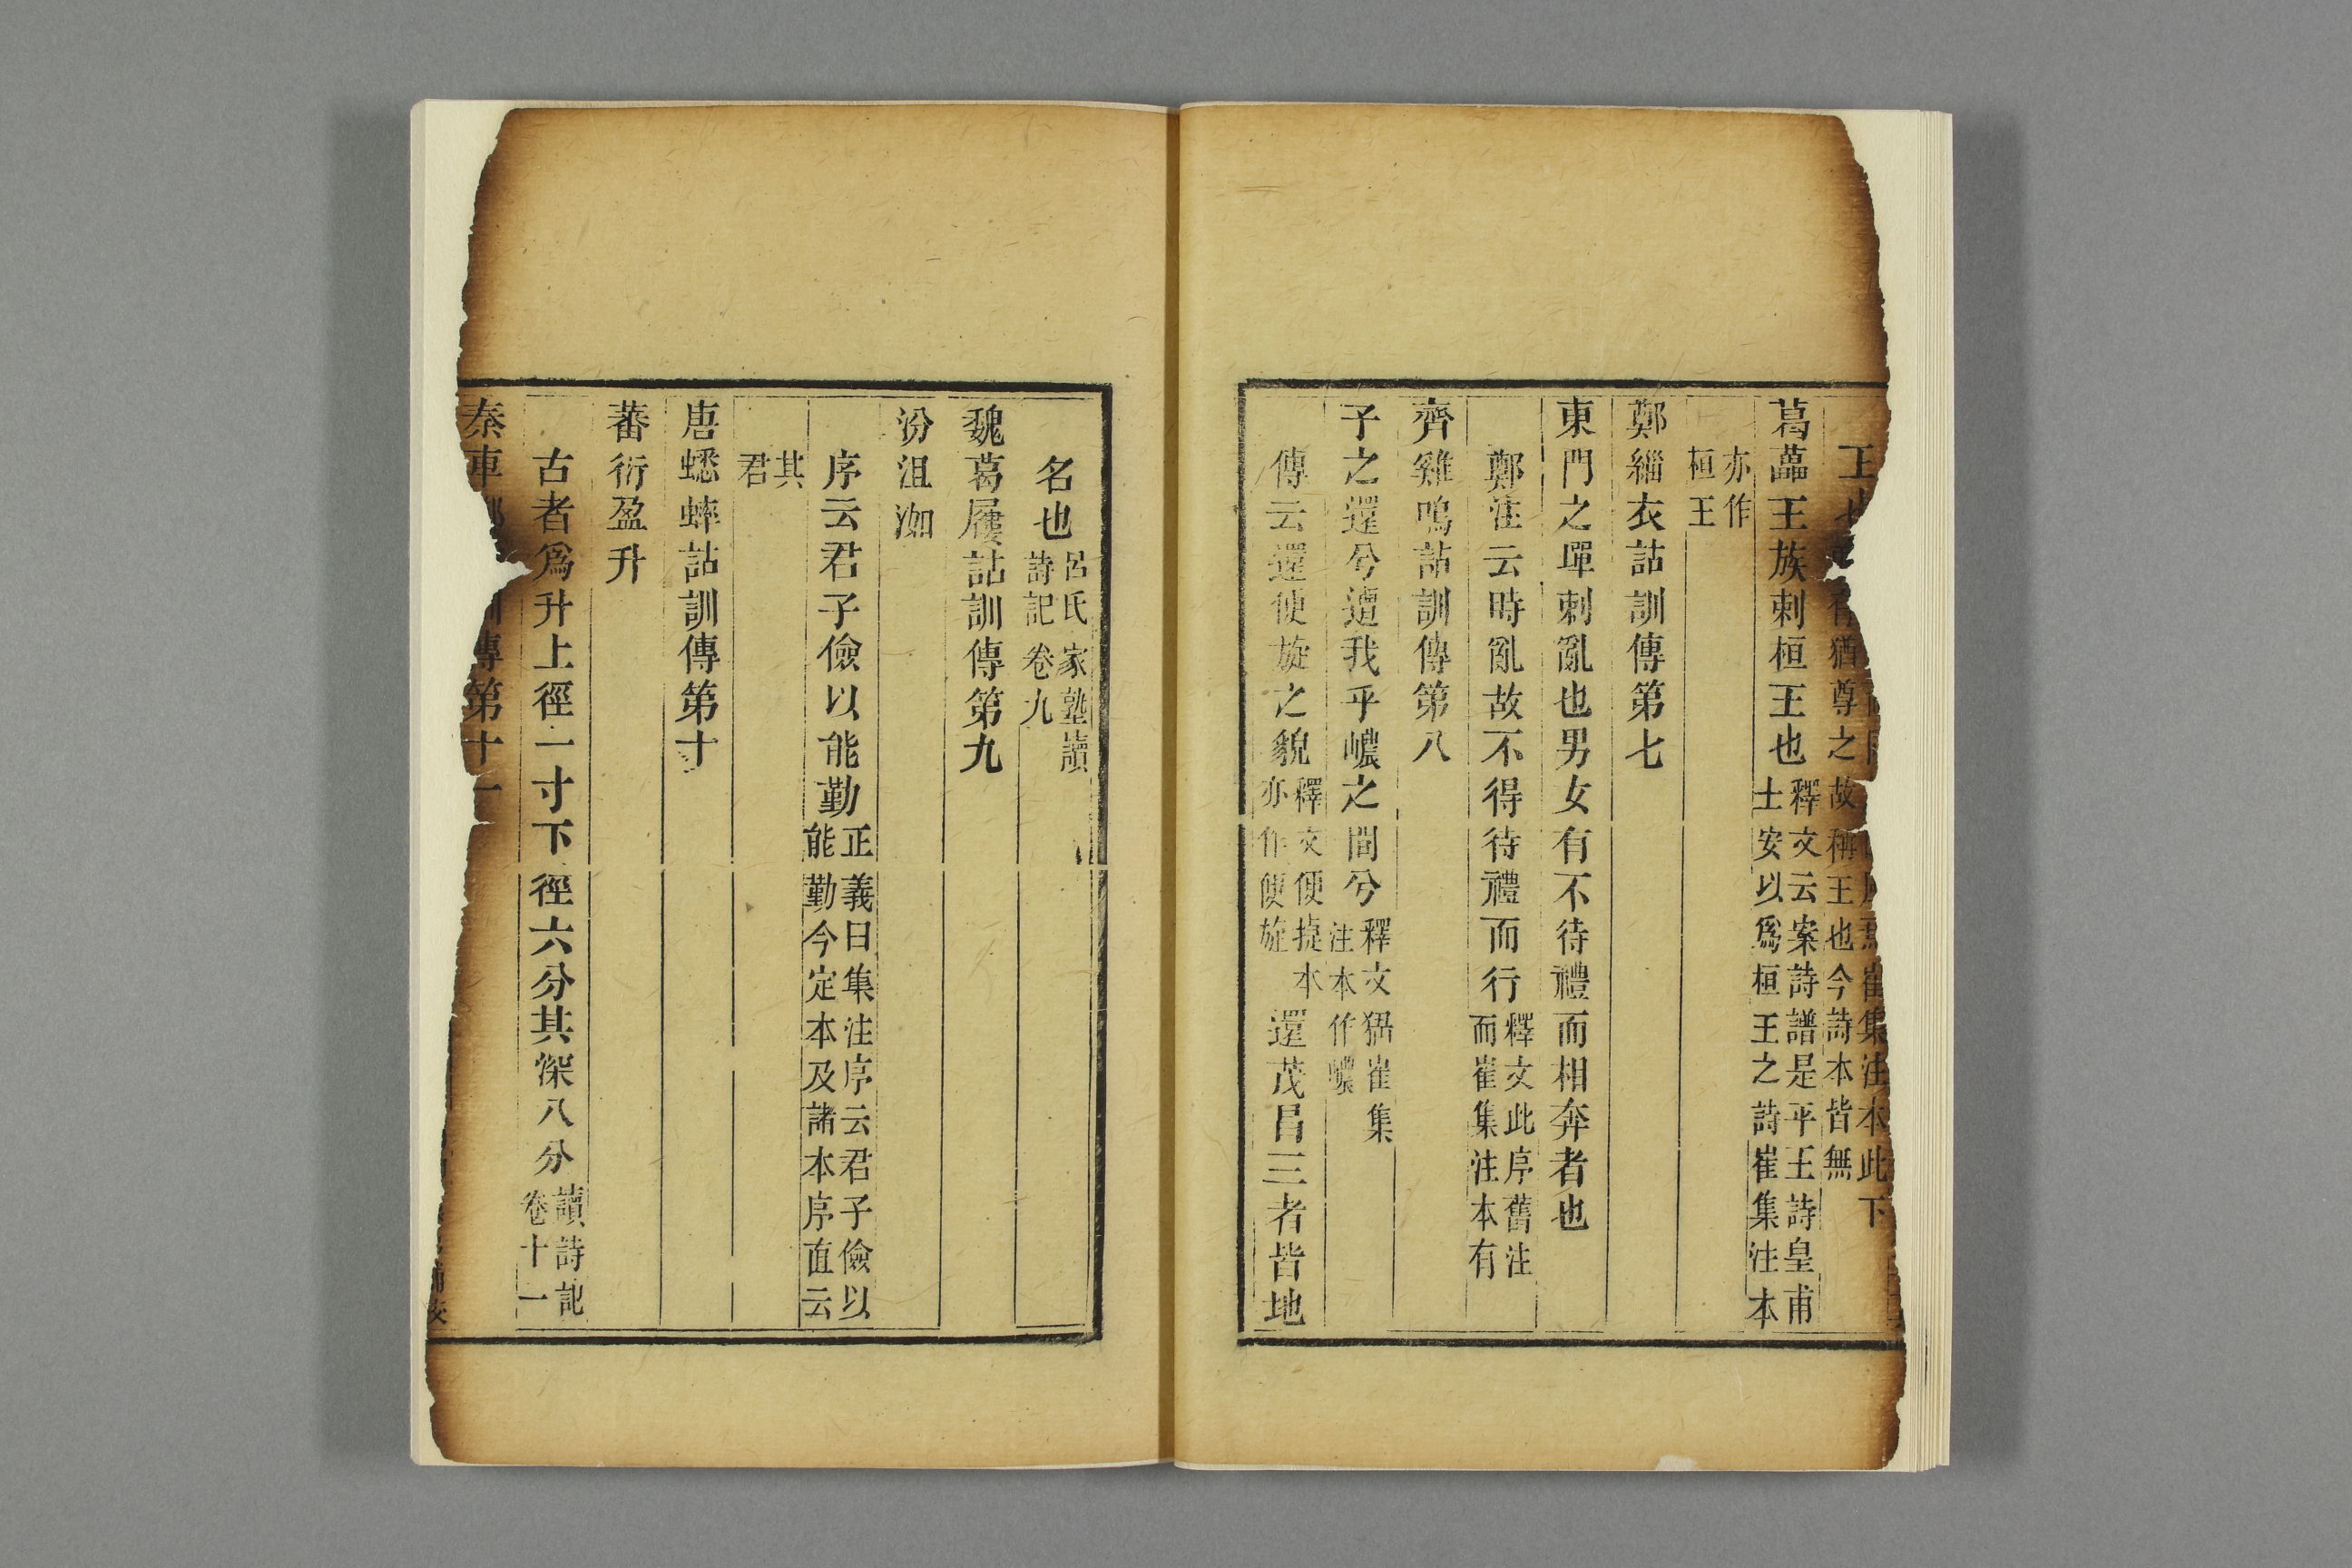 王 猶尊之故稱王也今詩本皆無 崔集注本此下
葛藟王族刺桓王也釋文云案詩譜是平王詩皇甫士安以爲桓王之詩崔集注本
亦作桓王
鄭緇衣詁訓傳第七
東門之墠刺亂也男女有不待禮而相奔者也
鄭注云時亂故不得待禮而行釋文此序舊注而崔集注本有
齊雞鳴詁訓傳第八
子之還兮遭我乎峱之間兮釋文猲崔集注本作巎
傳云還便旋之貌釋文便捷本亦作便旋還茂昌三者皆地
名也呂氏家塾讀詩記卷九
魏葛屨詁訓傳第九
汾沮洳
序云君子儉以能勤正義曰集注序云君子儉以能勤今定本及諸本序直云
其君
唐蟋蟀詁訓傳第十
蕃衍盈升
古者爲升上徑一寸下徑六分其深八分讀詩記卷十一
秦車 訓傳第十一